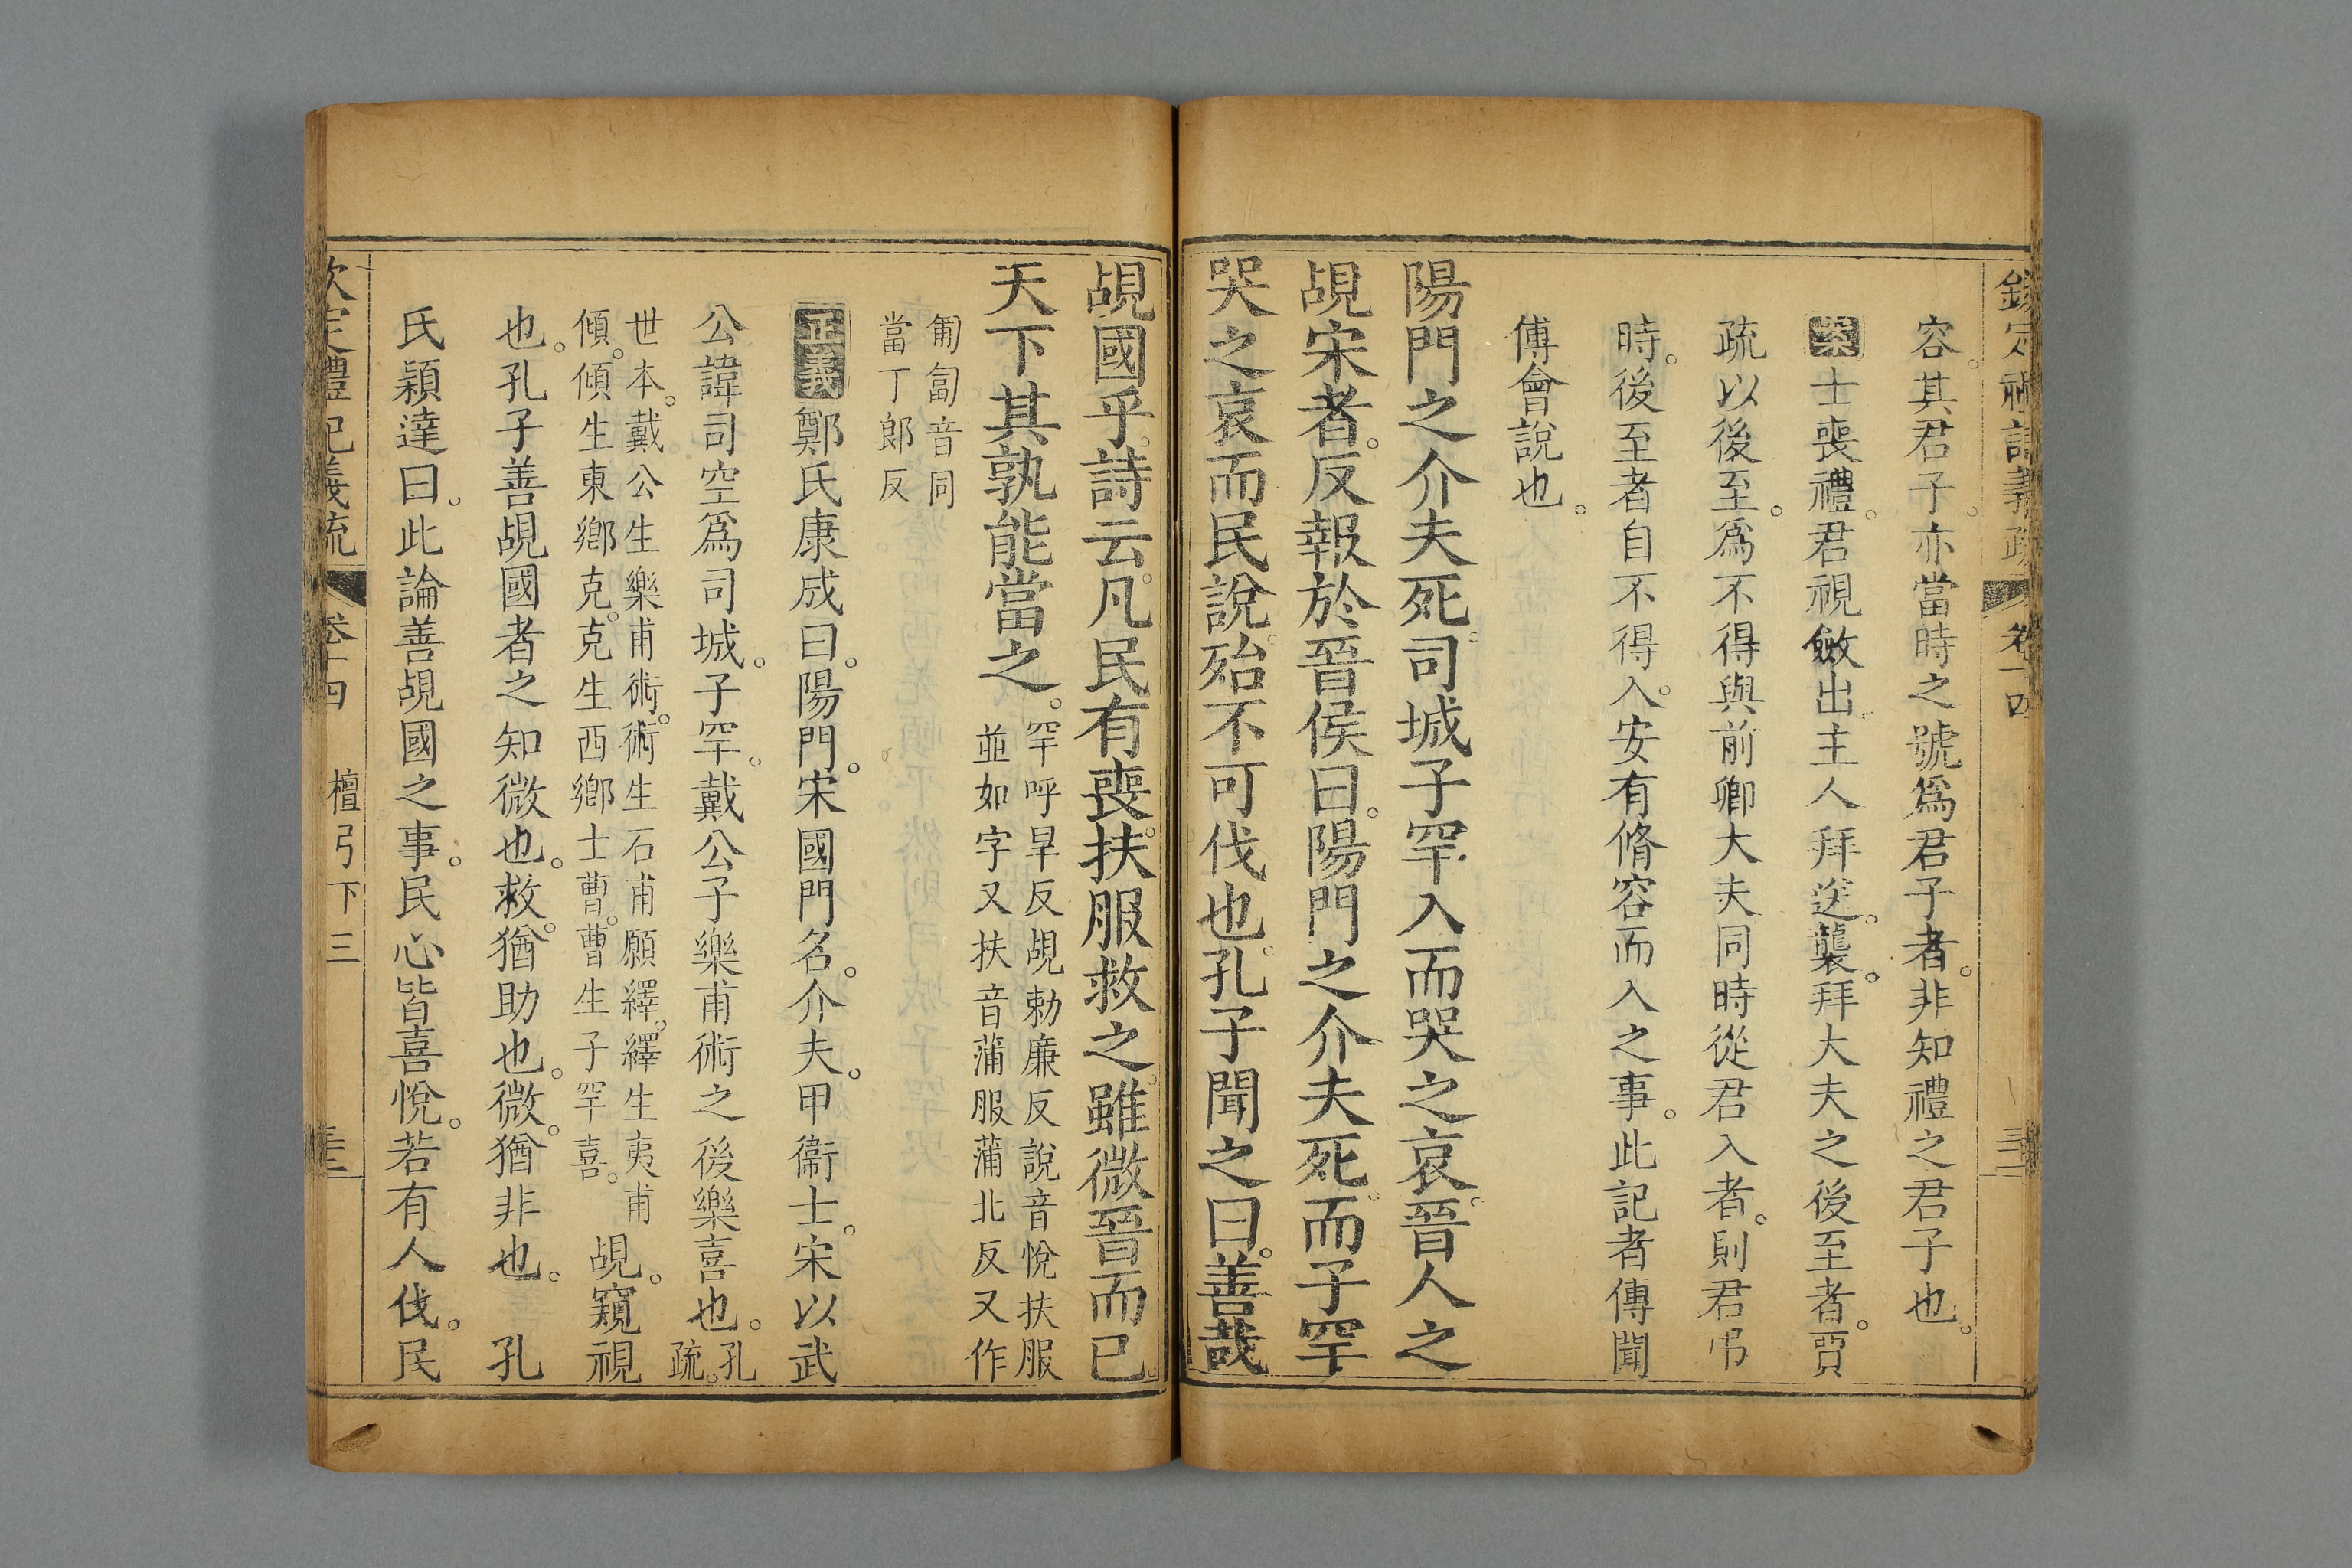 欽定禮記義疏 卷十四
容。其君子。亦當時之號爲君子者。非知禮之君子也。
案士喪禮。君視斂出。主人拜送。襲。拜大夫之後至者。賈
疏以後至。爲不得與前卿大夫同時從君入者。則君弔
時。後至者自不得入。安有脩容而入之事。此記者傳聞
傅會說也。
陽門之介夫死。司城子罕入而哭之哀。晉人之
覘宋者。反報於晉侯曰。陽門之介夫死。而子罕
哭之哀而民說。殆不可伐也。孔子聞之曰。善哉
覘國乎。詩云。凡民有喪。扶服救之。雖微晉而已。
天下其孰能當之。罕呼旱反覘勅廉反說音悅扶服
並如字又扶音蒲服蒲北反又作
匍匐音同
當丁郎反
正義鄭氏康成曰。陽門。宋國門名。介夫。甲衞士。宋以武
公諱司空爲司城。子罕。戴公子樂甫術之後樂喜也。孔
疏。
世本。戴公生樂甫術。術生石甫願繹。繹生夷甫
傾。傾生東鄉克。克生西鄉士曹。曹生子罕喜。覘。窺視
也。孔子善覘國者之知微也。救。猶助也。微。猶非也。孔
氏穎達曰。此論善覘國之事。民心皆喜悅。若有人伐。民
欽定禮記義疏 卷十四 檀弓下三